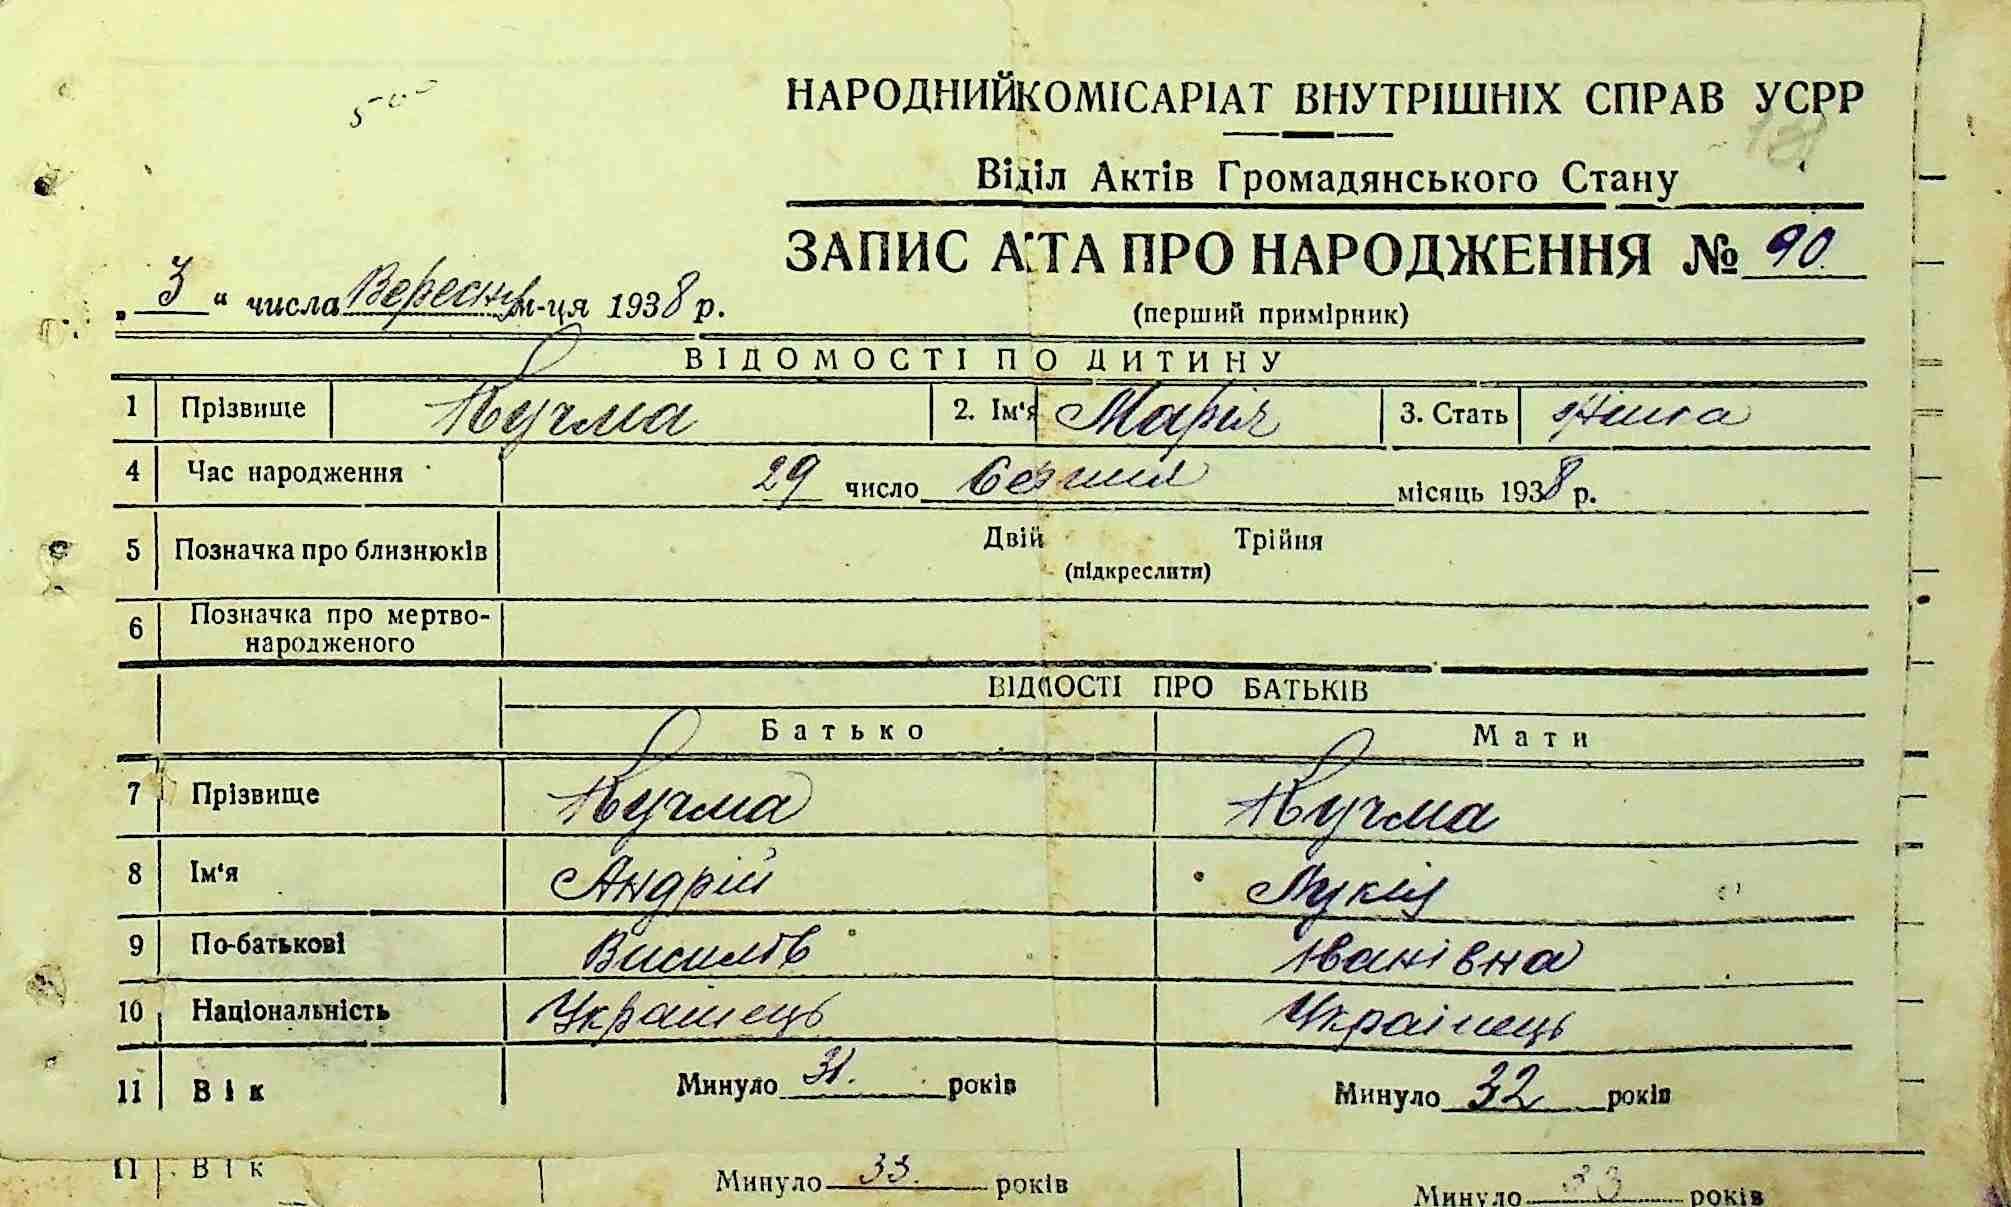 500
18
НАРОДНИЙ КОМІСАРІАТ ВНУТРІШНІХ СПРАВ УСРР
Віділ Актів Громадянського Стану
ЗАПИС АКТА ПРО НАРОДЖЕННЯ № 90
„ 3 “ числа Вересня м-ця 1938 р.
(перший примірник)
ВІДОМОСТІ ПО ДИТИНУ
1 Прізвище Кучма 2. Ім‘я Марія 3. Стать Жіноча
4 Час народження 29 число Серпня місяць 1938 р.
5 Позначка про близнюків Двій Трійня
(підкреслити)
6 Позначка про мертво-
народженого
ВІДМОСТІ ПРО БАТЬКІВ
Батько Мати
7 Прізвище Кучма Кучма
8 Ім‘я Андрій Лукія
9 По-батькові Василів Іванівна
10 Національність Українець Українець
11 Вік Минуло 31. років Минуло 32 років
11 Вік Минуло 33. років Минуло 33 років